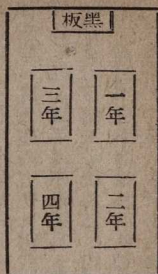 黑板
一年
二年
三年
四年